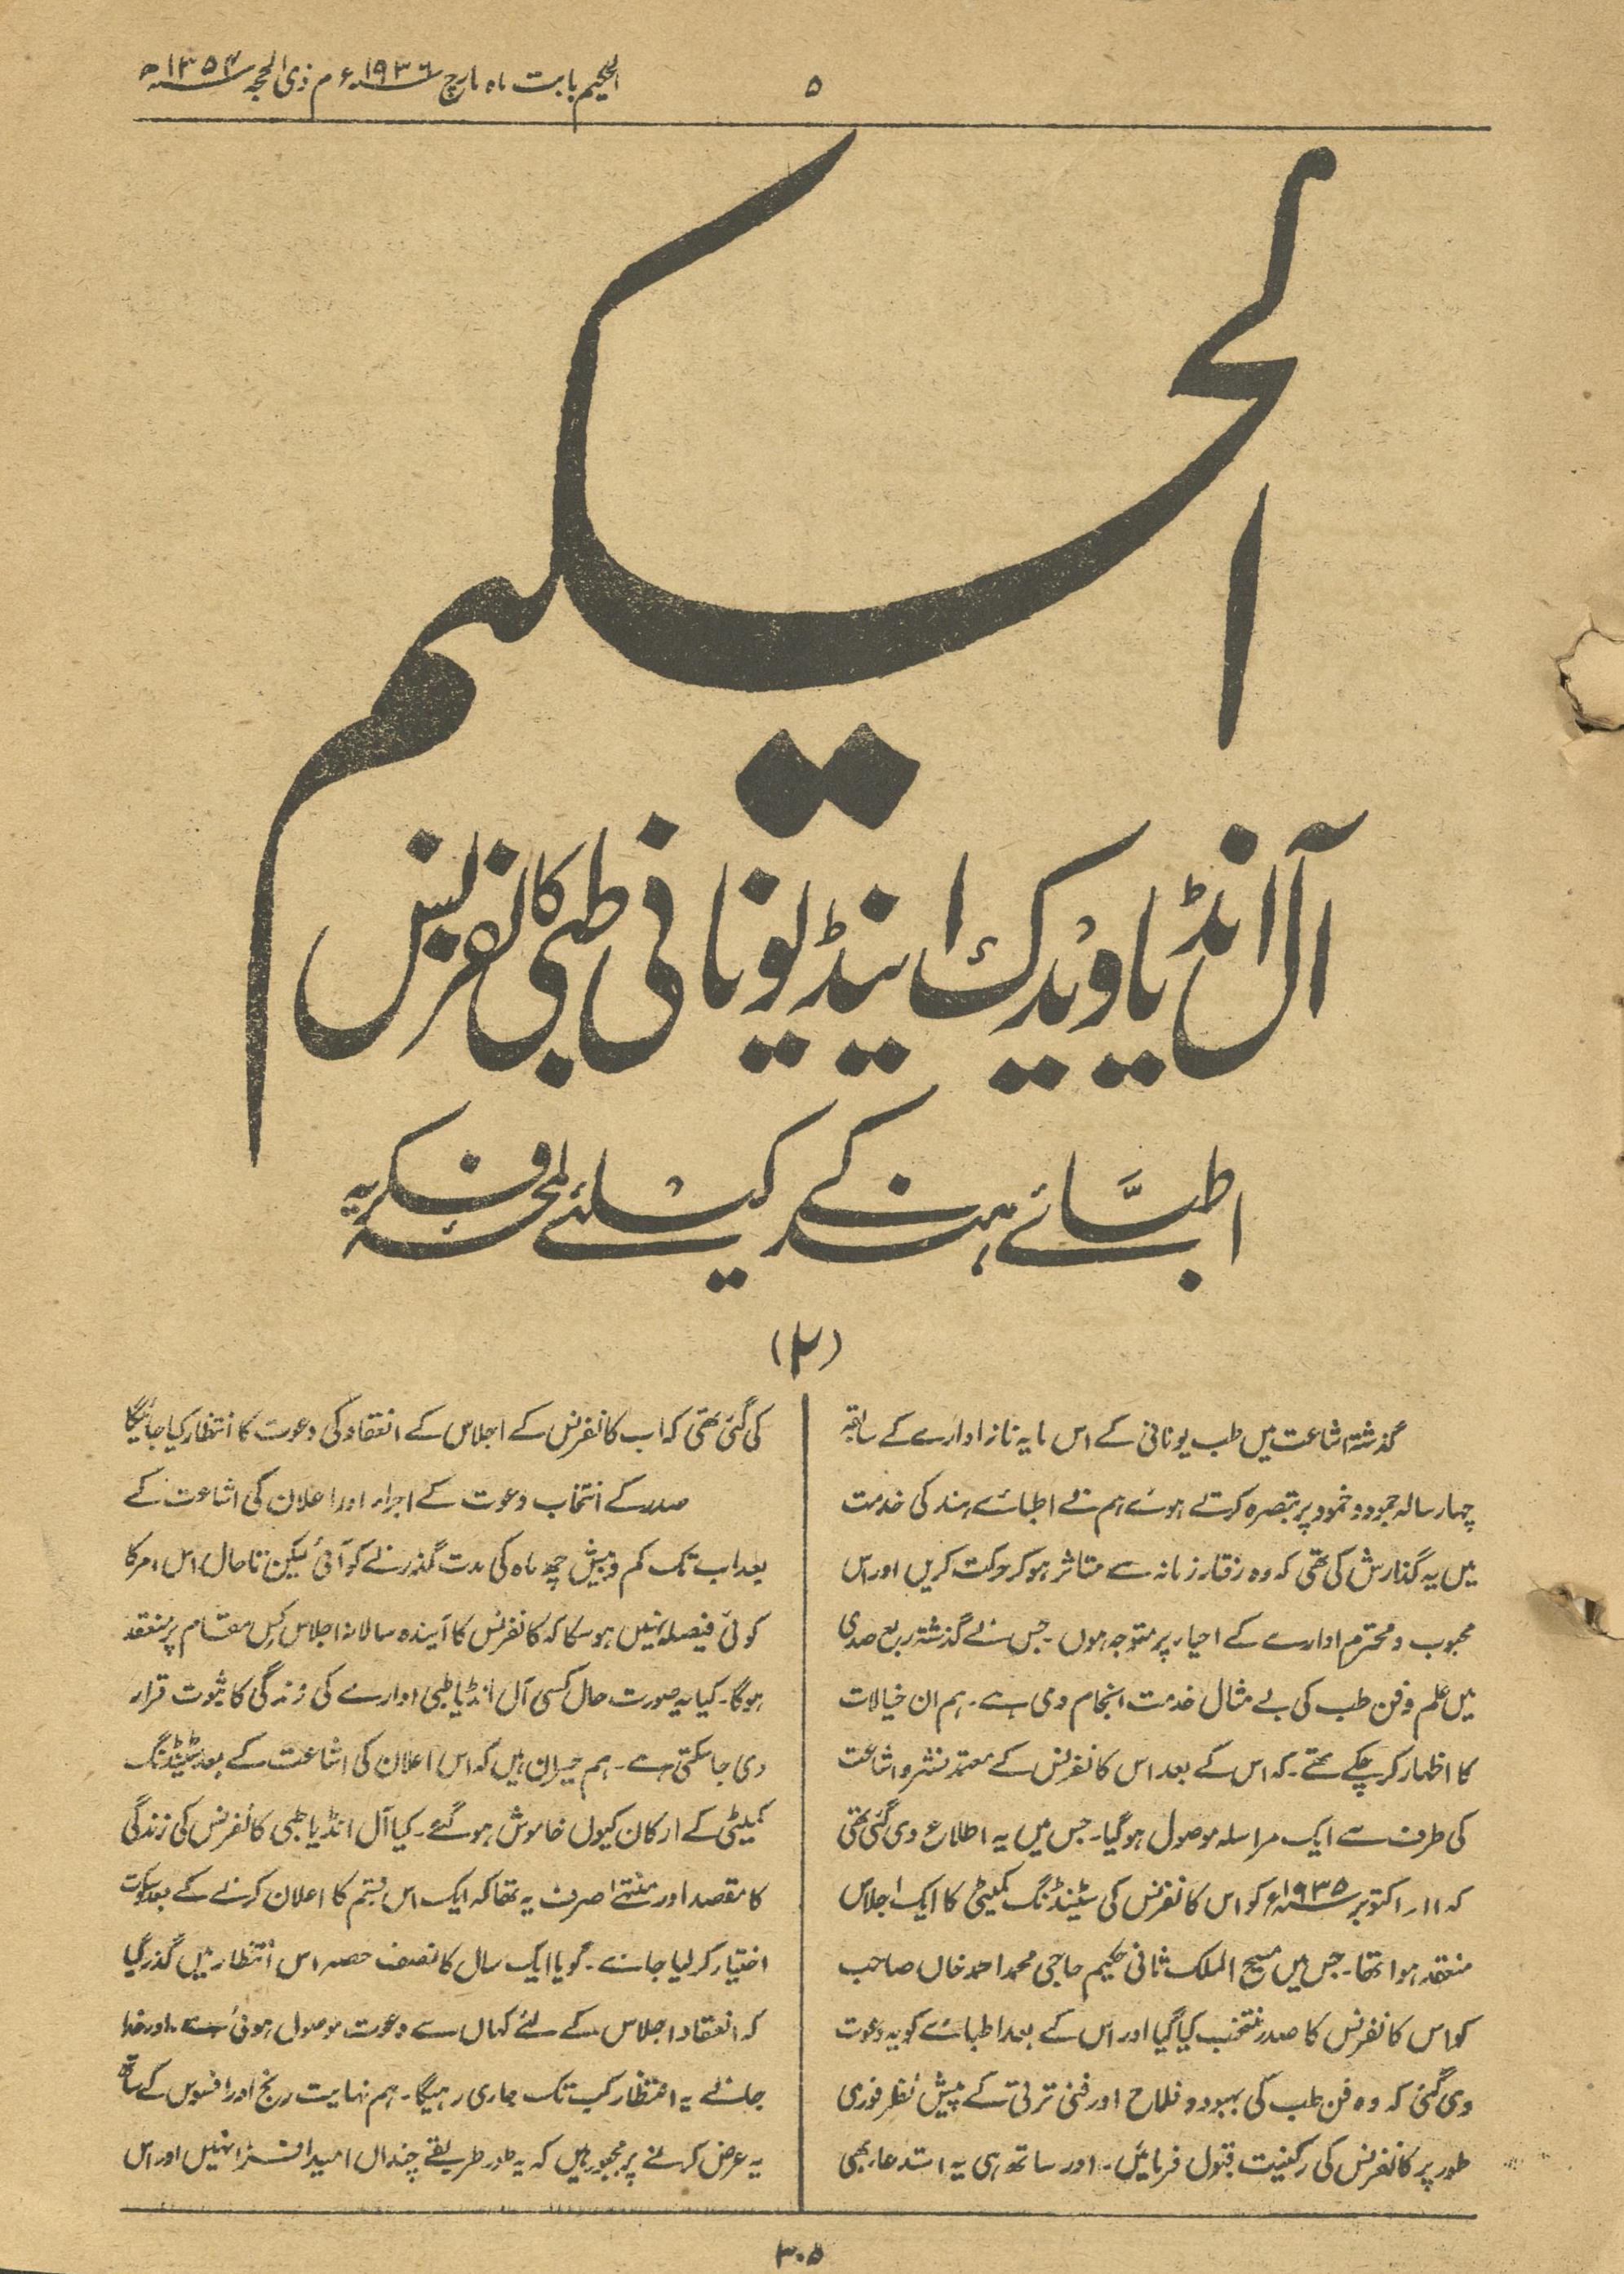 الحکیم بابت ماہ مارچ ۱۹۳۶ء م ذی الحجہ ۱۳۵۴ھ
۵
الحکیم
آل انڈیا ویدک اینڈ یونانی طبی کانفرنس
اطبّائے ہند کے کیلئے لمحۂ فکریہ
(۲)
گذشتہ اشاعت میں طب یونانی کے اس مایہ ناز ادارے کے سابقہ
چہار سالہ جمود و خمود پر تبصرہ کرتے ہوئے ہم نے اطبائے ہند کی خدمت
میں یہ گذارش کی تھی کہ وہ رفتار زمانہ سے متاثر ہو کر حرکت کریں اور اس
محبوب و محترم ادارے کے احیاء پر متوجہ ہوں۔ جس نے گذشتہ ربع صدی
میں علم و فن طب کی بے مثال خدمت انجام دی ہے۔ ہم ان خیالات
کا اظہار کر چکے تھے۔ کہ اس کے بعد اس کانفرنس کے معتمد نشر و اشاعت
کی طرف سے ایک مراسلہ موصول ہو گیا۔ جس میں یہ اطلاع دی گئی تھی
کہ ۱۱۔ اکتوبر ۱۹۳۵ء کو اس کانفرنس کی سٹینڈنگ کمیٹی کا ایک اجلاس
منعقد ہوا تھا۔ جس میں مسیح الملک ثانی حکیم حاجی محمد احمد خاں صاحب
کو اس کانفرنس کا صدر منتخب کیا گیا اور اس کے بعد اطبائے کو یہ دعوت
دی گئی کہ وہ فن طب کی بہبود و فلاح اور فنی ترقی کے پیش نظر فوری
طور پر کانفرنس کی رکنیت قبول فرمائیں۔ اور ساتھ ہی یہ استدعا بھی
کی گئی تھی کہ اب کانفرنس کے اجلاس کے انعقاد کی دعوت کا انتظار کیا جائیگا
صدر کے انتخاب دعوت کے اجراء اور اعلان کی اشاعت کے
بعد اب تک کم و بیش چھ ماہ کی مدت گذرنے کو آئی لیکن تاحال اس امر کا
کوئی فیصلہ نہیں ہو سکا کہ کانفرنس کا آیندہ سالانہ اجلاس کس مقام پر منعقد
ہوگا۔ کیا یہ صورت حال کسی آل انڈیا طبی ادارے کی زندگی کا ثبوت قرار
دی جا سکتی ہے۔ ہم حیران ہیں کہ اس اعلان کی اشاعت کے بعد سٹینڈنگ
کمیٹی کے ارکان کیوں خاموش ہو گئے۔ کیا آل انڈیا طبی کانفرنس کی زندگی
کا مقصد اور منتہےٰ صرف یہ تھا کہ ایک اس قسم کا اعلان کرنے کے بعد سکوت
اختیار کر لیا جائے۔ گویا ایک سال کا نصف حصہ اس انتظار میں گذر گیا
کہ انعقاد اجلاس کے لئے کہاں سے دعوت موصول ہوئی ہے۔ اور خدا
جانے یہ انتظار کب تک جاری رہیگا۔ ہم نہایت رنج اور افسوس کے ساتھ
یہ عرض کرنے پر مجبور ہیں کہ یہ طور طریقے چنداں امید افزا نہیں اور اس
۳۰۵